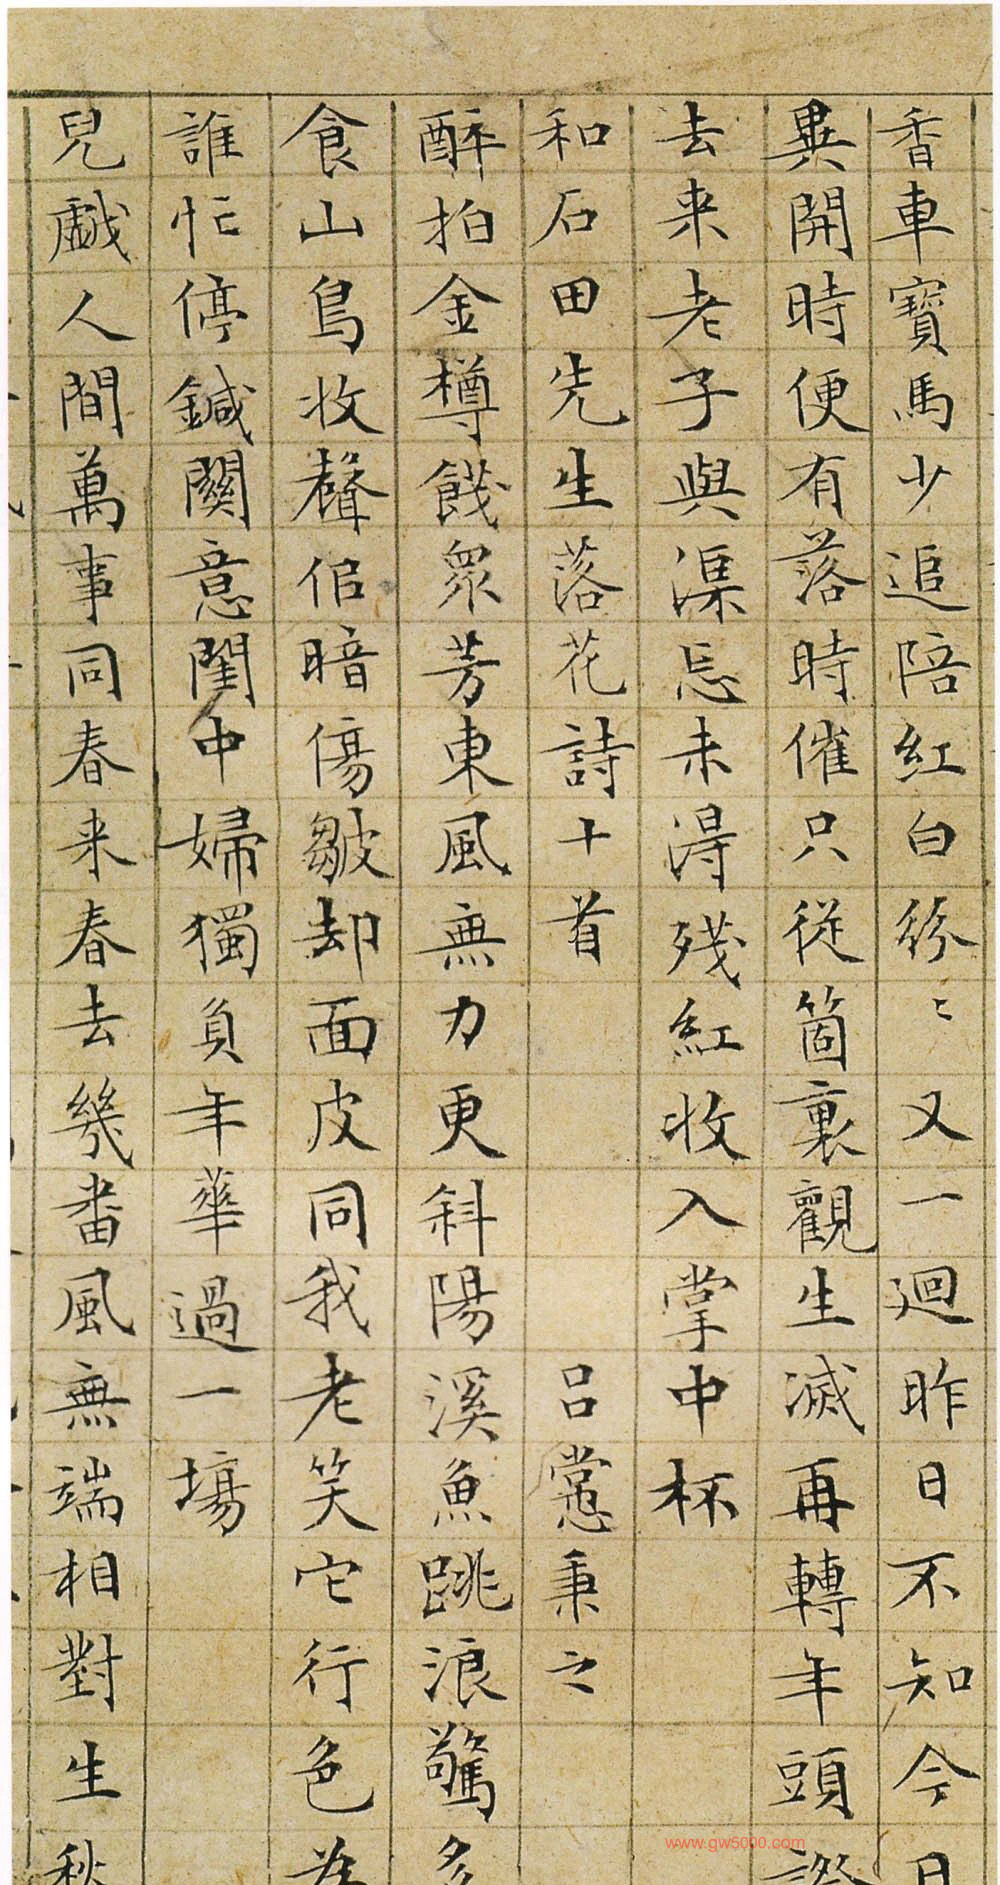 香車寶馬少追陪紅白紛〻又一迴昨日不知今日
異開時便有落時催只從箇裏觀生滅再轉年頭證
去来老子與渠忘未得殘紅收入掌中杯
和石田先生落花詩十首 呂㦂秉之
醉拍金樽餞眾芳東風無力更斜陽溪魚跳浪驚多
食山鳥收聲倌暗傷皺却面皮同我老笑它行色為
誰忙停鍼闗意閨中婦獨負年華過一場
兒戯人間萬事同春来春去幾番風無端相對生秋
www.gw5000.com